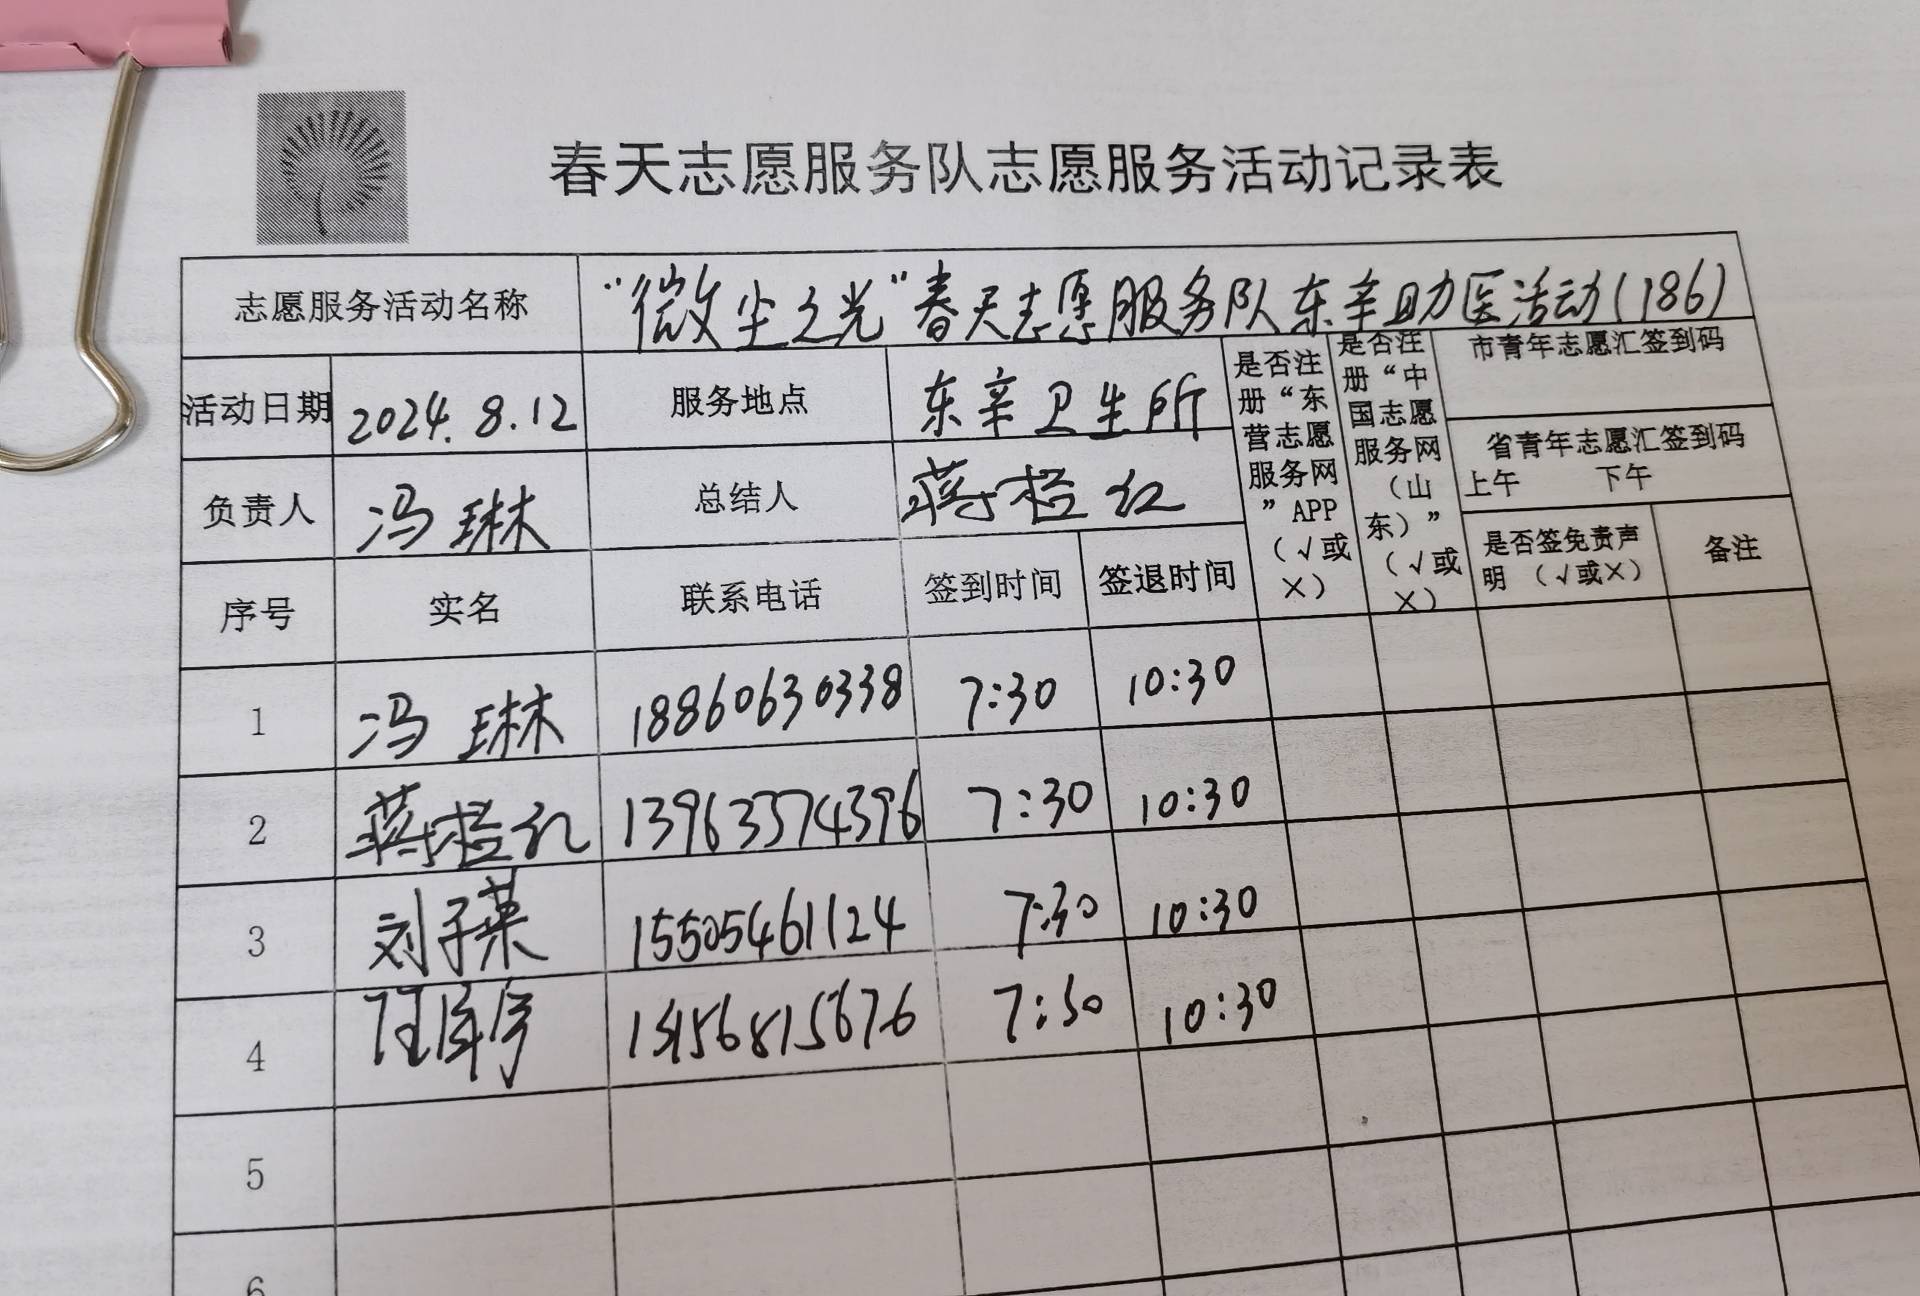 春天志愿服务队志愿服务活动记录表
志愿服务活动名称 “微尘之光”春天志愿服务队东辛助医活动(186)
活动日期 2024.8.12 服务地点 东辛卫生所
是否注册“东营志愿服务网”APP（√或×）
是否注册“中国志愿服务网（山东）”（√或×）
市青年志愿汇签到码
省青年志愿汇签到码
上午 下午
负责人 冯琳 总结人 蒋桂红
是否签免责声明（√或×） 备注
序号 实名 联系电话 签到时间 签退时间
1 冯琳 18860630338 7:30 10:30
2 蒋桂红 13963374396 7:30 10:30
3 刘子英 15505461124 7:30 10:30
4 7:30 10:30
5
6